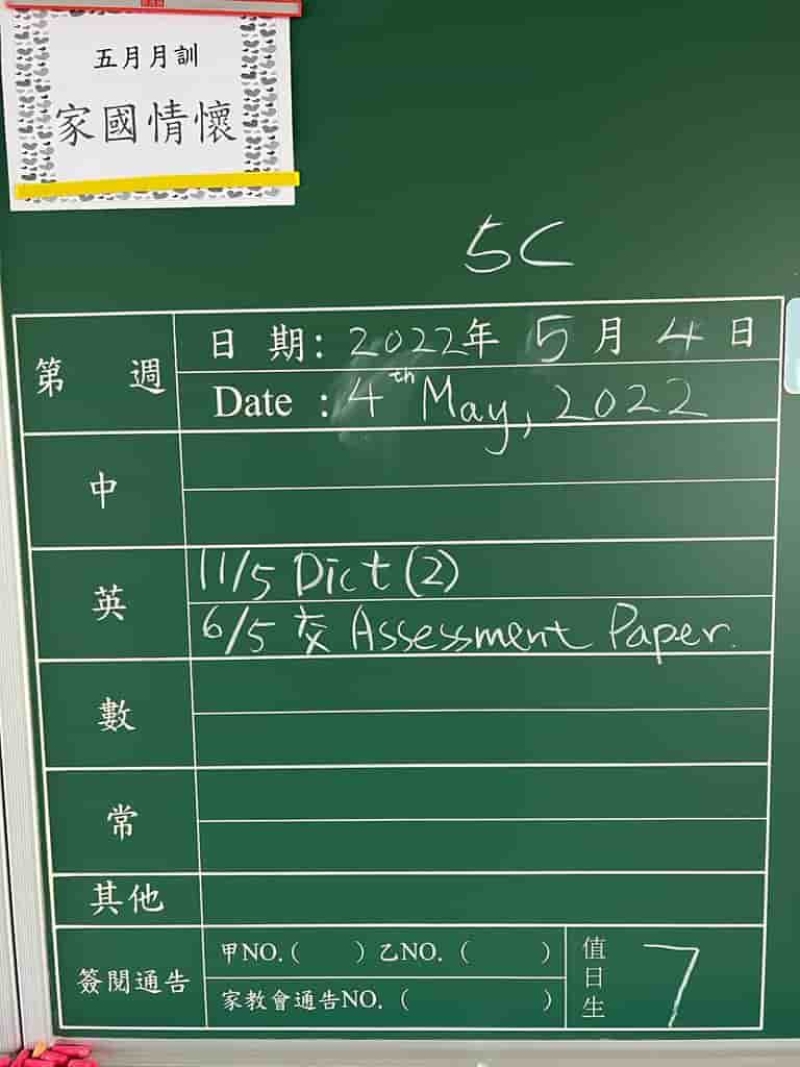 五月月訓
家國情懷
5C
第 週
日 期: 2022年 5 月 4 日
Date : 4th May, 2022
中
英
11/5 Dict (2)
6/5 交 Assessment Paper.
數
常
其他
簽閱通告
甲NO.( ) 乙NO. ( )
家教會通告NO. ( )
值日生 7